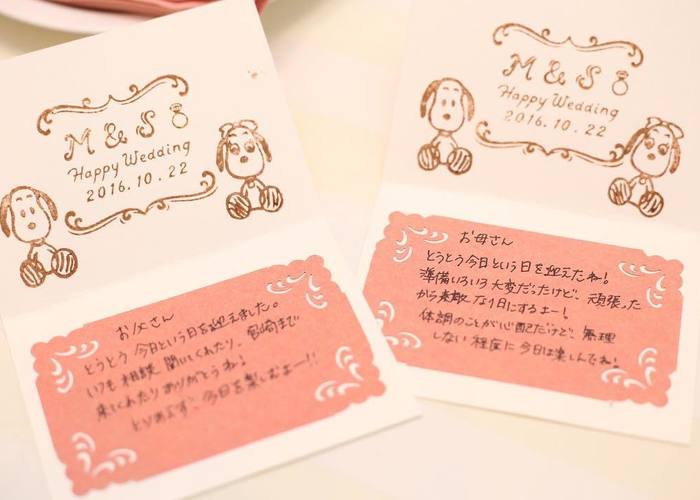 M & S
Happy Wedding
2016.10.22
お父さん
とうとう今日という日を迎えました。
いつも相談聞いてくれたり、宮崎まで
来てくれたりありがとうね!
とりあえず、今日を楽しむよー!!
M & S
Happy Wedding
2016.10.22
お母さん
とうとう今日という日を迎えたね!
準備いろいろ大変だったけど、頑張った
から素敵な1日にするよー!
体調のことが心配だけど、無理
しない程度に今日は楽しんでね!